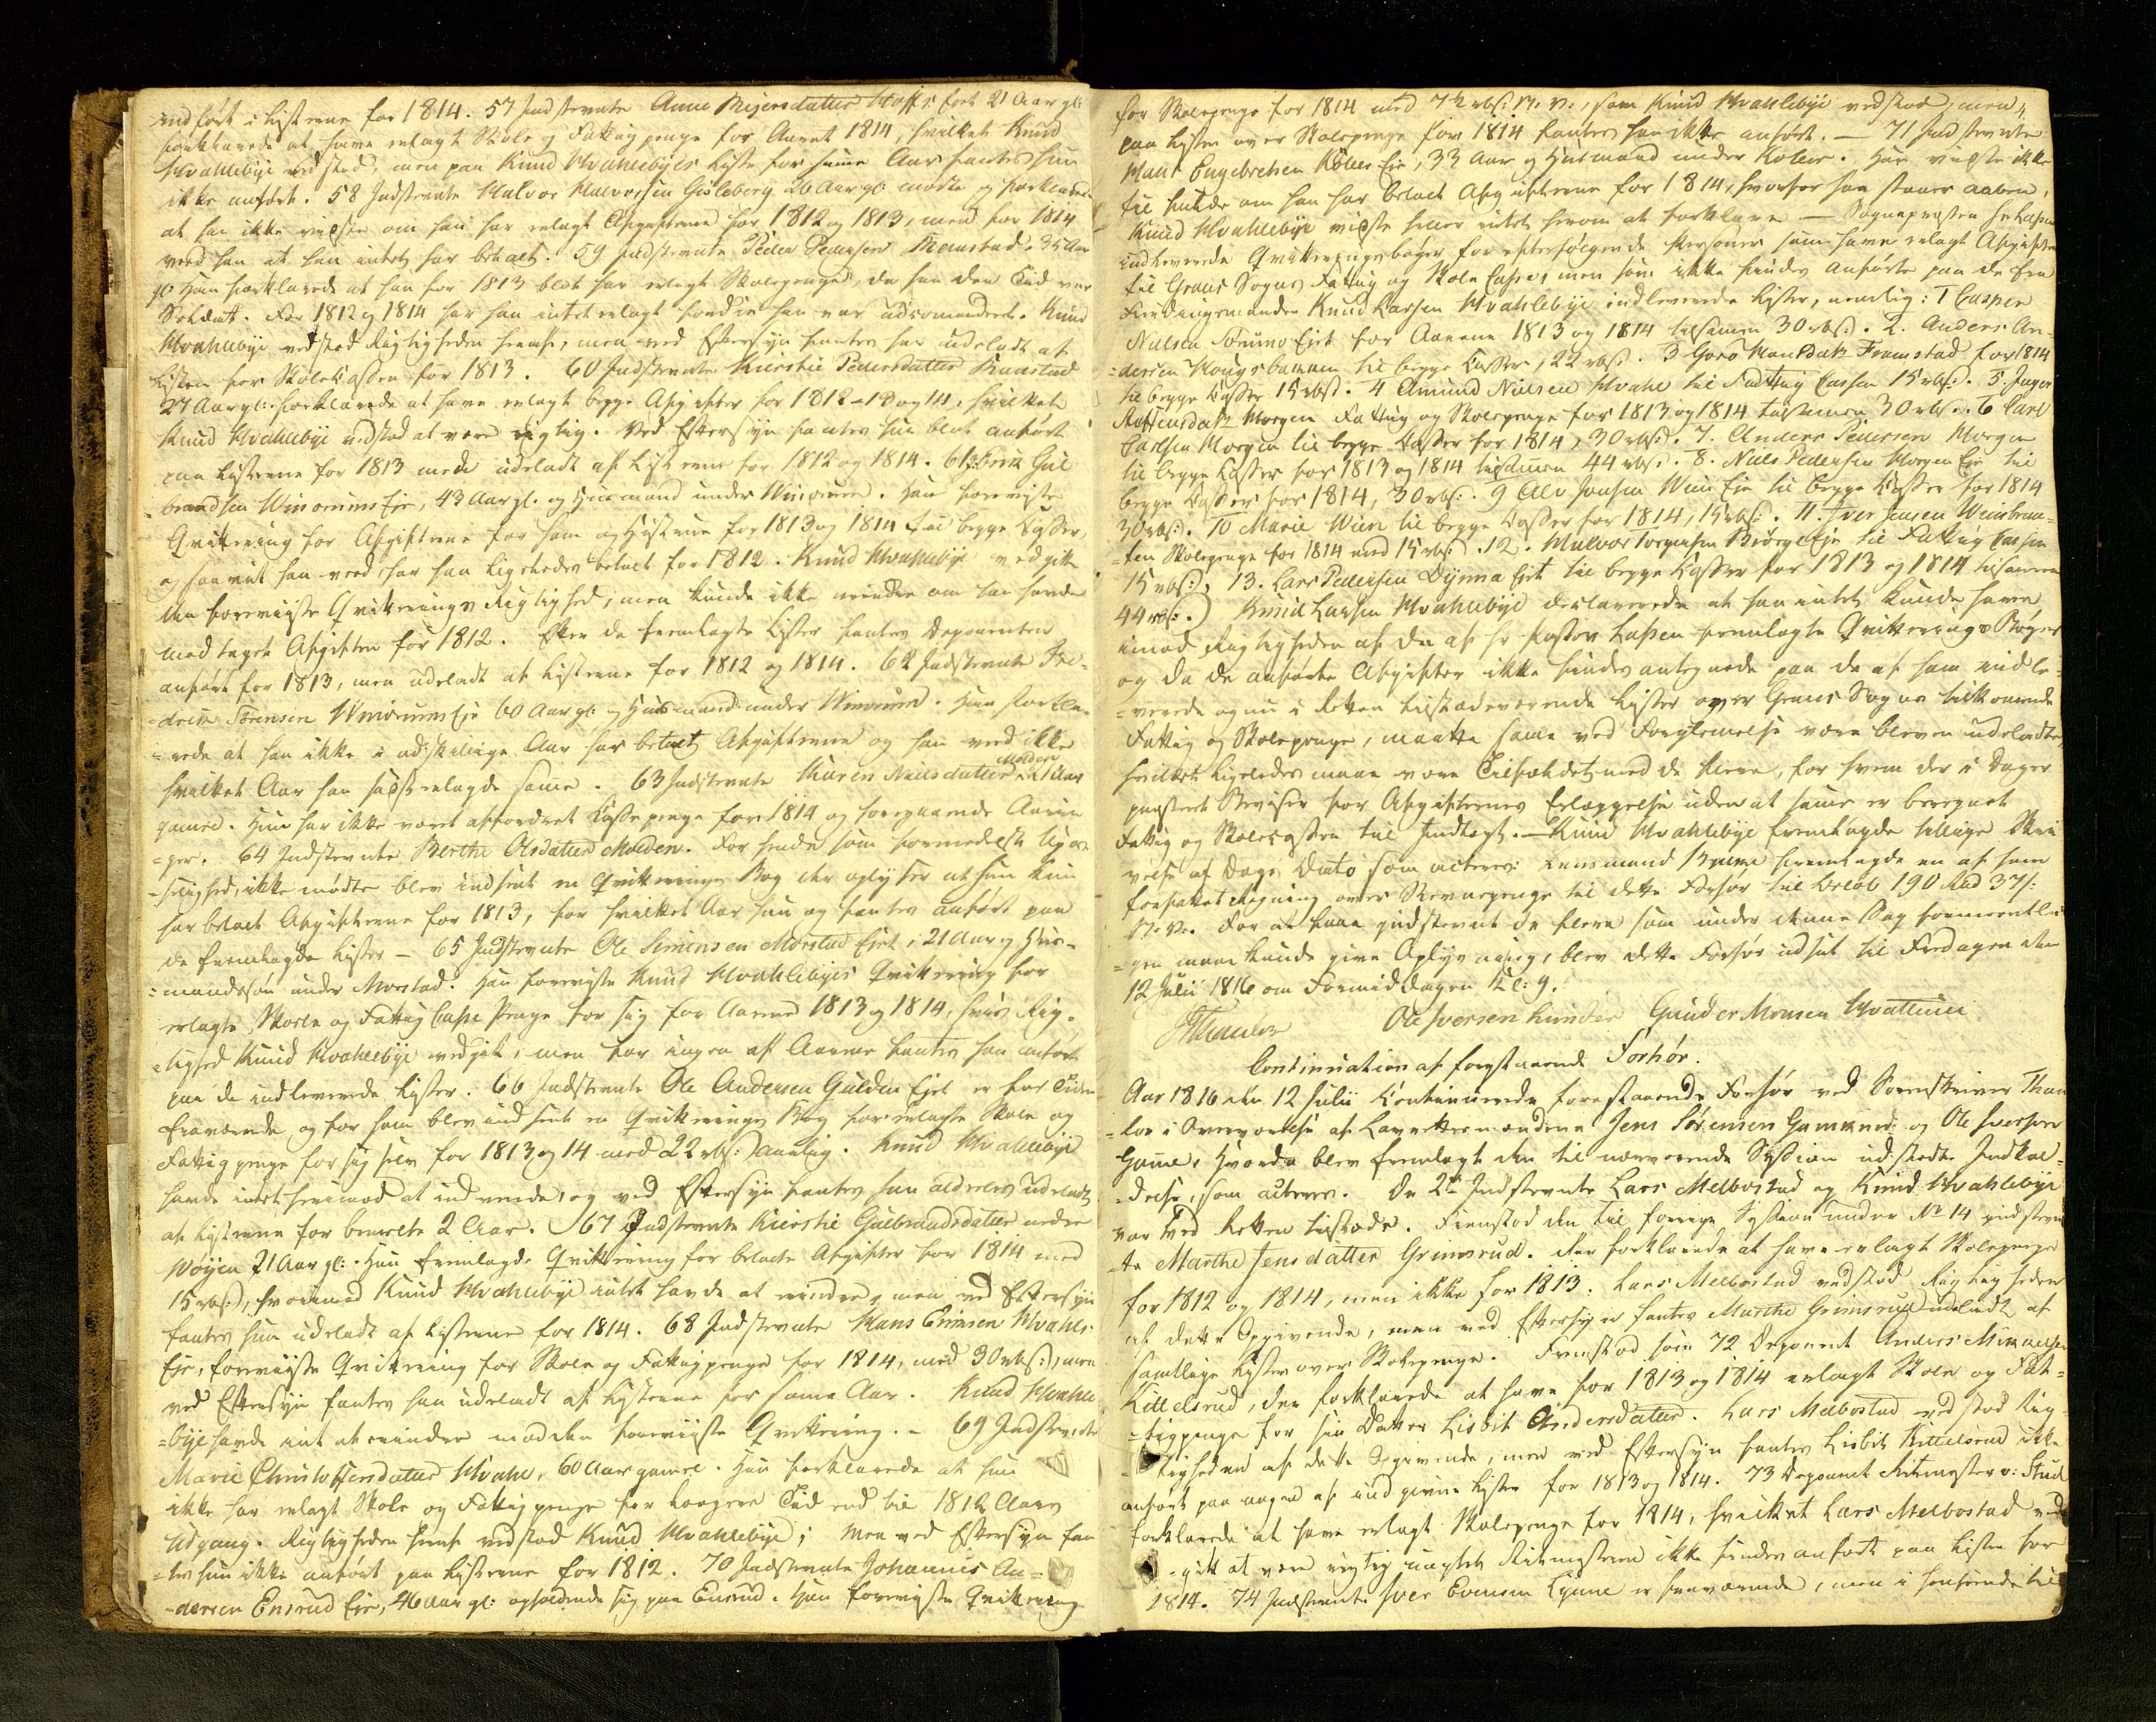 indført i Listerne for 1814. 57 Indstevnte Anne Meyersdatter Hoff: født 21 Aar gl:
forklarede at have erlagt Skole og Fattig penge for Aaret 1814, hvilket Knud
Hvahlebÿe vedstod, men paa Knud Hvahlebÿes Liste for samme Aar fantes hun
ikke anført. 58 Indstevnte Halvor Halvorsen Gisleberg 26 Aar gl: mødte og forklarede
at han ikke vidste om han har erlagt Afgifterne for 1812 og 1813, men for 1814
veed han at han intet har betalt. 59 Indstevnte Peder Pedersen Framstad 35 Aar
gl: Han forklarede at han for 1813 blot har erlagt Skolepenge, da han den Tid var
Soldat. For 1812 og 1814 har han intet erlagt fordi han var udcomanderet. Knud
Hvahlebÿe vedstod Rigtigheden heraf, men ved Eftersyn fantes han udeladt af
Listen for SkoleCassen for 1813. 60 Indstevnte Kierstie Pedersdatter Framstad
27 Aar gl: forklarede at have erlagt begge Afgifter for 1812-13 og 14, hvilket
Knud Hvahlebÿe vedstod at være rigtig. Ved Eftersyn fantes hun blot anført
paa Listerne for 1813 men udeladt af Listerne for 1812 og 1814. 61 Erik Gul
brandsen Winorums Eje, 43 Aar gl. og Huusmand under Winorum. Han foreviste
Qvittering for Afgifterne for ham og Hustrue for 1813 og 1814 til begge Casser,
og saavidt han veed har han ligeledes betalt for 1812. Knud Hvahlebÿe vedgik
den foreviiste Qvitterings Rigtighed, men kunde ikke erindre om han havde
modtaget Afgiften for 1812. Efter de fremlagte Lister fantes Deponenten
anført for 1813, men udeladt af Listerne for 1812 og 1814. 62 Indstevnte Fre-
=derik Sørensen Winorums Eje 60 Aar gl: og Huusmand under Winorum. Han forkla-
=rede at han ikke i adskillige Aar har betalt Afgifterne og han ved ikke
hvilket Aar han sidst erlagde samme. 63 Indstevnte Karen Nielsdatter Molden 21 Aar
gamel. Hun har ikke været affordret Casse penge for 1814 og foregaaende Aarin
=ger. 64 Indstevnte Berthe Olsdatter Molden. For hende som formedelst Upas
=selighed, ikke mødte blev indsendt en Qvitterings Bog der oplyser at hun kun
har betalt Afgifterne for 1813, for hvilket Aar hun og fantes anført paa
de fremlagde Lister – 65 Indstevnte Ole Simensen Morstad Eiet, 21 Aar og Huus-
=mandssøn under Morstad. Han foreviste Knud Hvahlebÿes Qvittering for
erlagte Skole og Fattig Casse Penge for sig for Aarene 1813 og 1814, hvis Rig-
=tighed Knud Hvahlebÿe vedgik, men for ingen af Aarene fantes han anført
paa de indleverede Lister. 66 Indstevnte Ole Andersen Gulden Ejet er for Tiden
fraværende og for ham blev indsendt en Qvitterings Bog for erlagte Skole og
Fattig penge for sig selv for 1813 og 14 med 22 rbs: aarlig. Knud Hvahlebÿe
havde intet herimod at indvende, og ved Eftersyn fantes han aldeles udeladt
af Listerne for bemelte 2 Aar. 67 Indstevnte Kierstie Gulbrandsdatter nedre
Wøyen 21 Aar gl:. Hun fremlagde Qvittering for betalte Afgifter for 1814 med
15 rbs:, hvorimod Knud Hvahlebÿe intet havde at erindre, men ved Eftersyn
fantes hun udeladt af Listerne for 1814. 68 Indstevnte Hans Erichsen Hvahls
Eje, foreviiste Qvittering for Skole og Fattig penge for 1814, med 30 rbs:, men
ved Eftersyn fantes han udeladt af Listerne for samme Aar. Knud Hvahle
=bÿe havde intet at erindre mod den foreviiste Qvittering. – 69 Indstevnte
Marie Christophersdatter Hvahl, 60 Aar gamel. Hun forklarede at hun
ikke har erlagt Skole og Fattig penge for længere Tid end til 1812 Aars
Udgang. Rigtigheden heraf vedstod Knud Hvahlebÿe; men ved Eftersyn fan
=tes hun ikke anført paa Listerne for 1812. 70 Indstevnte Johannes An=
=dersen Ensrud Eje, 46 Aar gl: opholdende sig paa Ensrud. Han foreviste Qvittering
for Skolepenge for 1814 med 7½ rbs: N: V:, som Knud Hvahlebÿe vedstod, men
paa Listen over Skolepenge for 1814 fantes han ikke anført. – 71 Indstevnte
Hans Engebretsen Kolles Eje, 33 Aar og Huusmand under Kolle. Han vidste ikke
om han har betalt Afgifterne for 1814, hvorfor han staaer aaben,
Knud Hvahlebÿe vidste heller intet herom at forklare – Sognepræsten Hr Lassen
indleverede Qvitteringsbøger for efterfølgende Personer som have erlagt Afgifter
til Grans Sogns Fattig og Skole Casse, men som ikke findes anførte paa de fra
Foredingsmanden Knud Larsen Hvahlebÿe indleverede Lister, nemlig: 1 Casper
Nielsen Sørumo Eiet for Aarene 1813 og 1814 tilsamen 30 rbs:. 2. Anders An-
=dersen til begge Casser, 22 rbs:. 3 Goro Hansdatr Framstad for 1814
til begge Casser 15 rbs:. 4 Amund Nielsen Hvahl til Fattig Cassen 15 rbs:. 5. Inger
Morgen Fattig og Skolepenge for 1813 og 1814 tilsamen 30 rbs:. 6 Carl
Carlsen Morgen til begge Casser for 1814, 30 rbs:. 7. Anders Pedersen Morgen
til begge Casser for 1813 og 1814 tilsamen 44 rbs:. 8. Niels Pedersen Morgen Eje til
begge Casser for 1814, 30 rbs:. 9 Alv Jonsen Wien Eje til begge Casser for 1814
30 rbs:. 10 Marie Wien til begge Casser for 1814, 15 rbs:. 11. Iver Jensen
Skolepenge for 1814 med 15 rbs:. 12. Halvor Torgersen Biørge Eje til Fattig Cassen
15 rbs:, 13. Lars Pedersen Dynna Ejet til begge Casser for 1813 og 1814 tilsamen
44 rbs:.) Knud Larsen Hvahlebÿe declarerede at han intet kunde have
imod Rigtigheden af de af Hr Pastor Lassen fremlagte Qvitterings Bøger
og da de anførte Afgifter ikke findes antegnede paa de af ham indle-
=verede og nu i Retten tilstædeværende Lister over Grans Sogns tilkomende
Fattig og Skolepenge, maatte samme ved Forglemmelse være bleven udeladte,
hvilket ligeledes maae være Tilfældet med de flere, for hvem der i Dag er
præsteret Beviser for Afgifternes Erlæggelse uden at samme er beregnet
Fattig og Skolecassen til Indtægt. – Knud Hvahlebÿe fremlagde tillige Skri
velse af Dags Dato som acteres: Lensmand fremlagde en af ham
forfattet Regning over Stevnepenge til dette Forhør til Beløb 190 Rbd 37 s:
N: V. For at faae indstevnt de flere som under denne Sag formeentli
=gen maae kunde give Oplysning, blev dette Forhør udsat til Fredagen den
12 Julii 1816 om Formiddagen Kl: 9.
Thaulow Ole Iversen Gunder Monsen Hvattum
Continuation af forestaaende Forhør.
Aar 1816 den 12 Julii Continuerede forestaaende Forhør ved Sorenskriver Thau
=low i Overværelse af Laugrettesmændene Jens Sørensen Gamkind og Ole Iversen
Game. Hvorda blev fremlagt den til nærværende Session udstedte Indkal=
=delse, som acteres. De 2de Indstevnte Lars Melbostad og Knud Hvahlebÿe
var ved Retten tilstæde. Fremstod den til forrige Session under No 14 indstevn
te Marthe Jensdatter Grimsrud. Der forklarede at have erlagt Skolepenge
for 1812 og 1814, men ikke for 1813. Lars Melbostad vedstod Rigtigheden
af dette Opgivende, men ved Eftersyn fantes Marthe Grimsrud udeladt af
samtlige Lister over Skolepenge. Fremstod som 72 Deponent Anders Mikkelsen
Kittelsrud, der forklarede at have for 1813 og 1814 erlagt Skole og Fat=
=tigpenge for sin Datter Lisbit Andersdatter. Lars Melbostad vedstod Rig
=tigheden af dette Opgivende, men ved Eftersyn fantes Lisbit Kittelsrud ikke
anført paa nogen af indgivne Lister for 1813 og 1814. 73 Deponent Ritmester v: Stud
forklarede at have erlagt Skolepenge for 1814, hvilket Lars Melbostad ved
=gik at være rigtig uagtet Ritmesteren ikke findes anført paa Listen for
1814. 74 Indstevnte Iver Evensen Lynne er fraværende, men i Henseende til